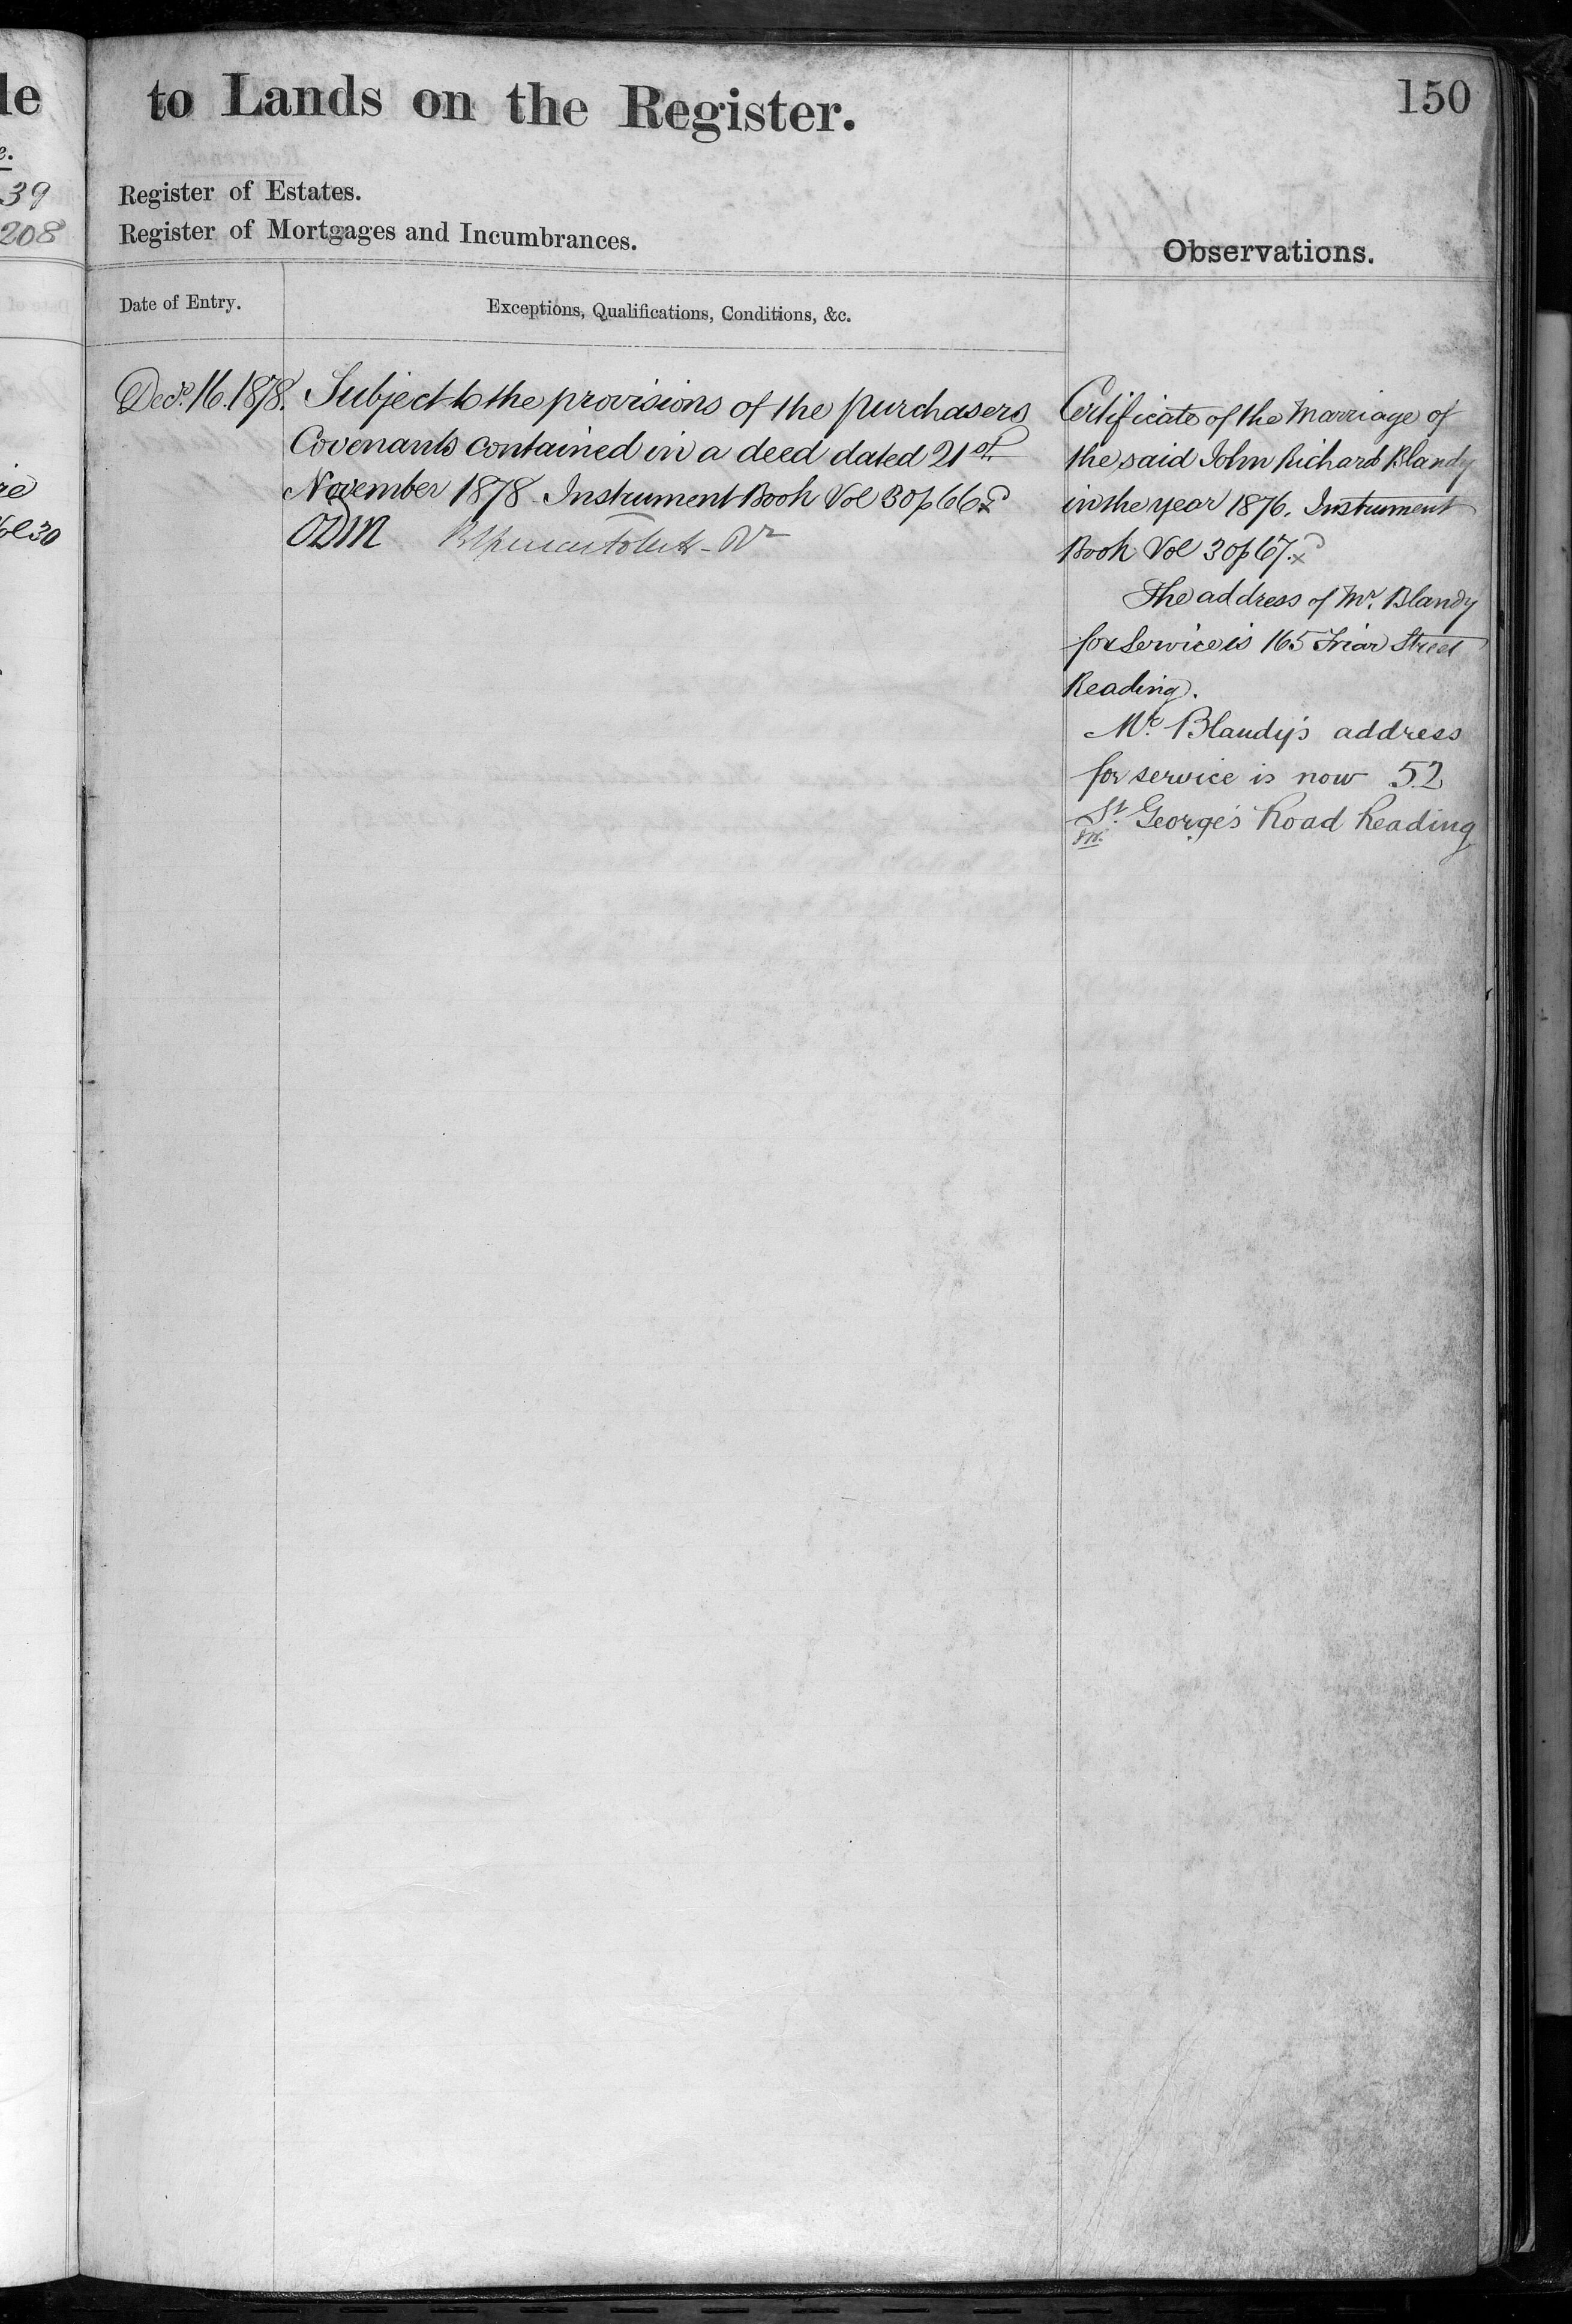 le
to Lands on the Register.
150
e.
39
208
Register of Estates.
Register of Mortgages and Incumbrances.
Observations.
Date of Entry.
Exceptions, Qualifications, Conditions, &c.
Decr. 16. 1878.
Subject to the provisions of the purchasers
Covenants contained in a deed dated 21st
November 1878. Instrument Book Vol 30 p 66
ODM
re
Vol 30
Certificate of the Marriage of
the said John Richard Blandy
in the year 1876. Instrument
Book Vol 30 p 67.
The address of Mr. Blandy
for Service is 165 Friar Street
Reading.
Mr. Blandy's address
for service is now 52
St. George's Road Reading